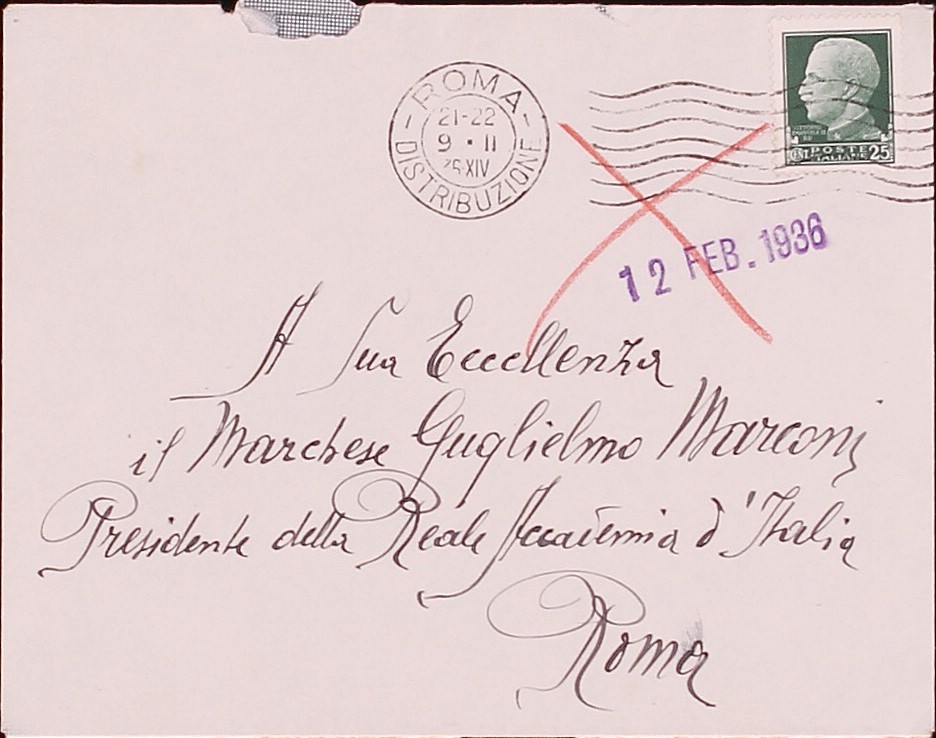 ROMA
21-22
9 · II
XIV
DISTRIBUZIONE
POSTE
ITALIANE
CENT. 25
12 FEB. 1936
A Sua Eccellenza
il Marchese Guglielmo Marconi
Presidente della Reale Accademia d'Italia
Roma